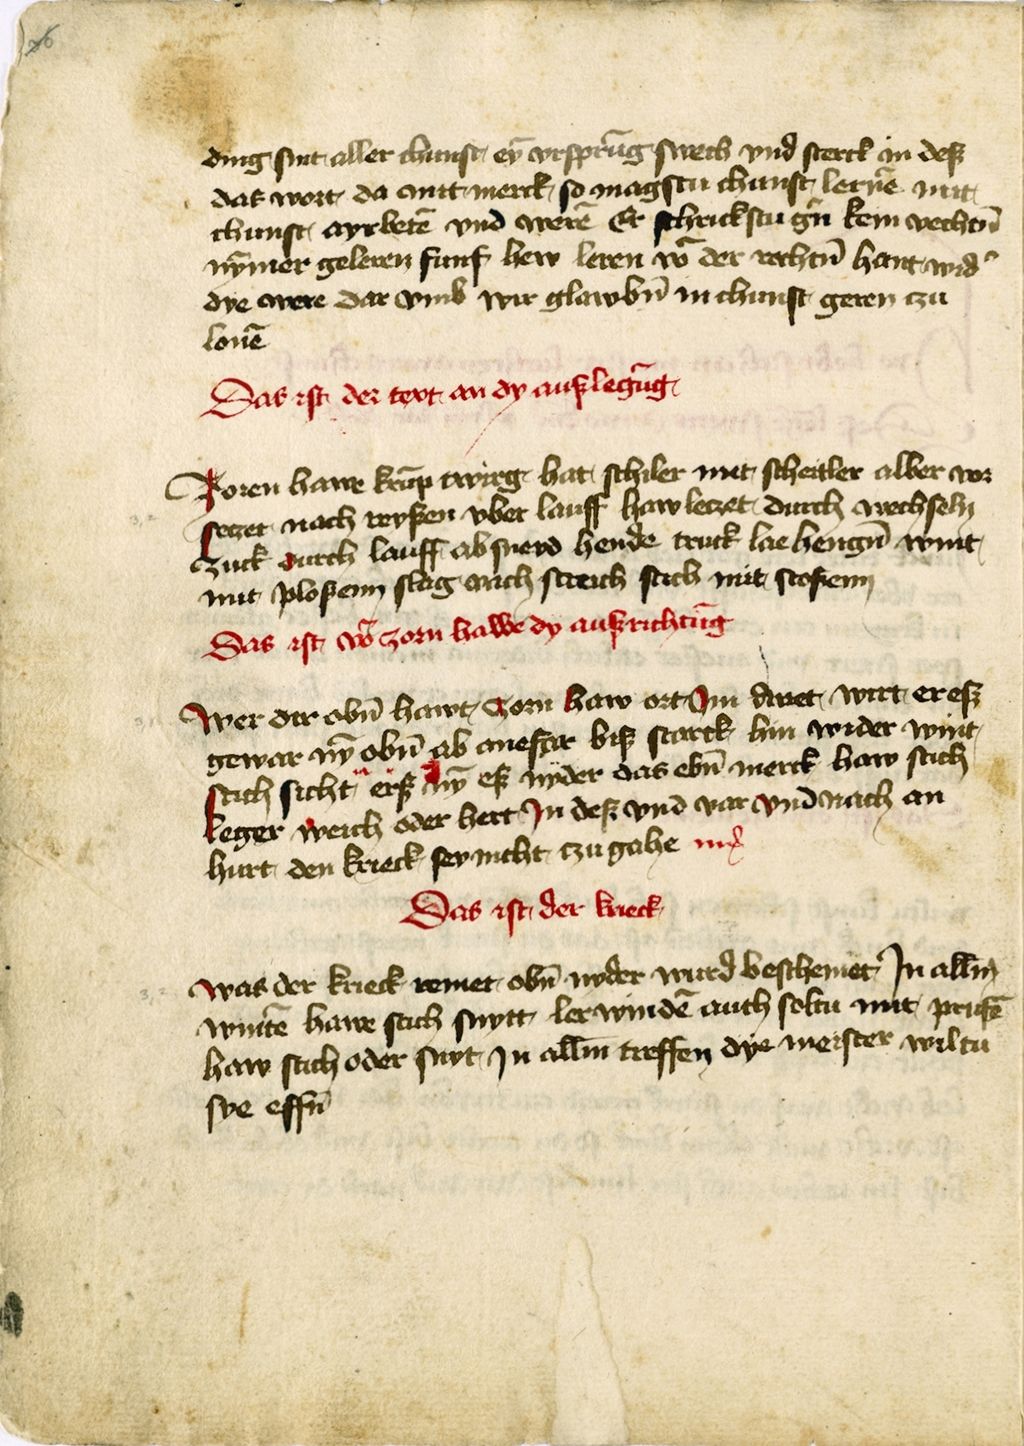 ding sint aller chunst eȳ vrsprūg swech vnd sterck in deß
das wort da mit merck so magstu chunst lernē mit
chunst ayrbetē vnd werē Er schrickstu gr̄n kein vechtn̄
nÿmer geleren funf hew leren vō der rechtn̄ hant wid
dye were dar vmb wir glawbn̄ in chunst geren czu
lonē
Das ist der text an dy außlegūg
Zoren hawe krūp twirg hat schiler mit scheitler alber vor
seczet nach reyßen vber lauff haw leczet durch wechseln
Zuck durch lauff ab sneyd hende truck lae hengn̄ wint
mit ploßenn slag vach streich stich mit stoßenn
Das ist vō zorn hawe dy außrichtūg
Wer dir obn̄ hawt zorn haw ort Im drret wirt er eß
gewar nȳ obn̄ ab anefar biß starck hin wider wint
stich sicht erß nȳ eß nyder das ebn̄ merck haw stich
leger weich oder hert In deß vnd var vnd nach an
hurt den krieck sey nicht czu gahe
Das ist der krieck
Was der krieck remet obn̄ nyder wurd beschemet In alln̄
wintē hawe stich snytt ler windē auch soltu mit prufē
haw stich oder snyt In alln̄ treffen dye meister wiltu
sye effn̄